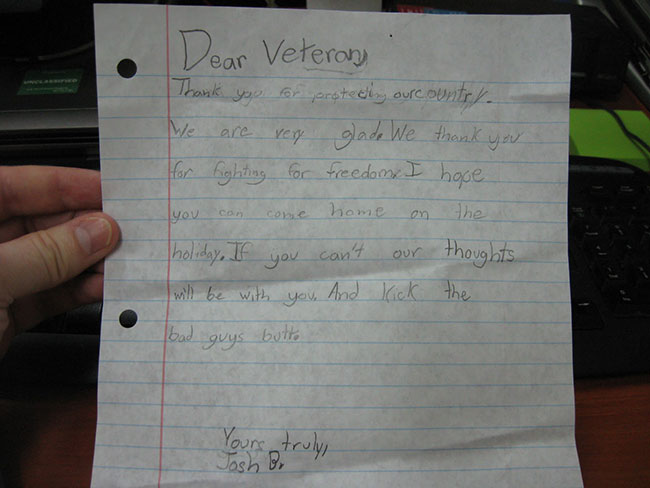 UNCLASSIFIED
Dear Veteran,
Thank you for protecting our country.
We are very glad. We thank you
for fighting for freedom. I hope
you can come home on the
holiday. If you can't our thoughts
will be with you. And kick the
bad guys butt.
Yours truly,
Josh B.